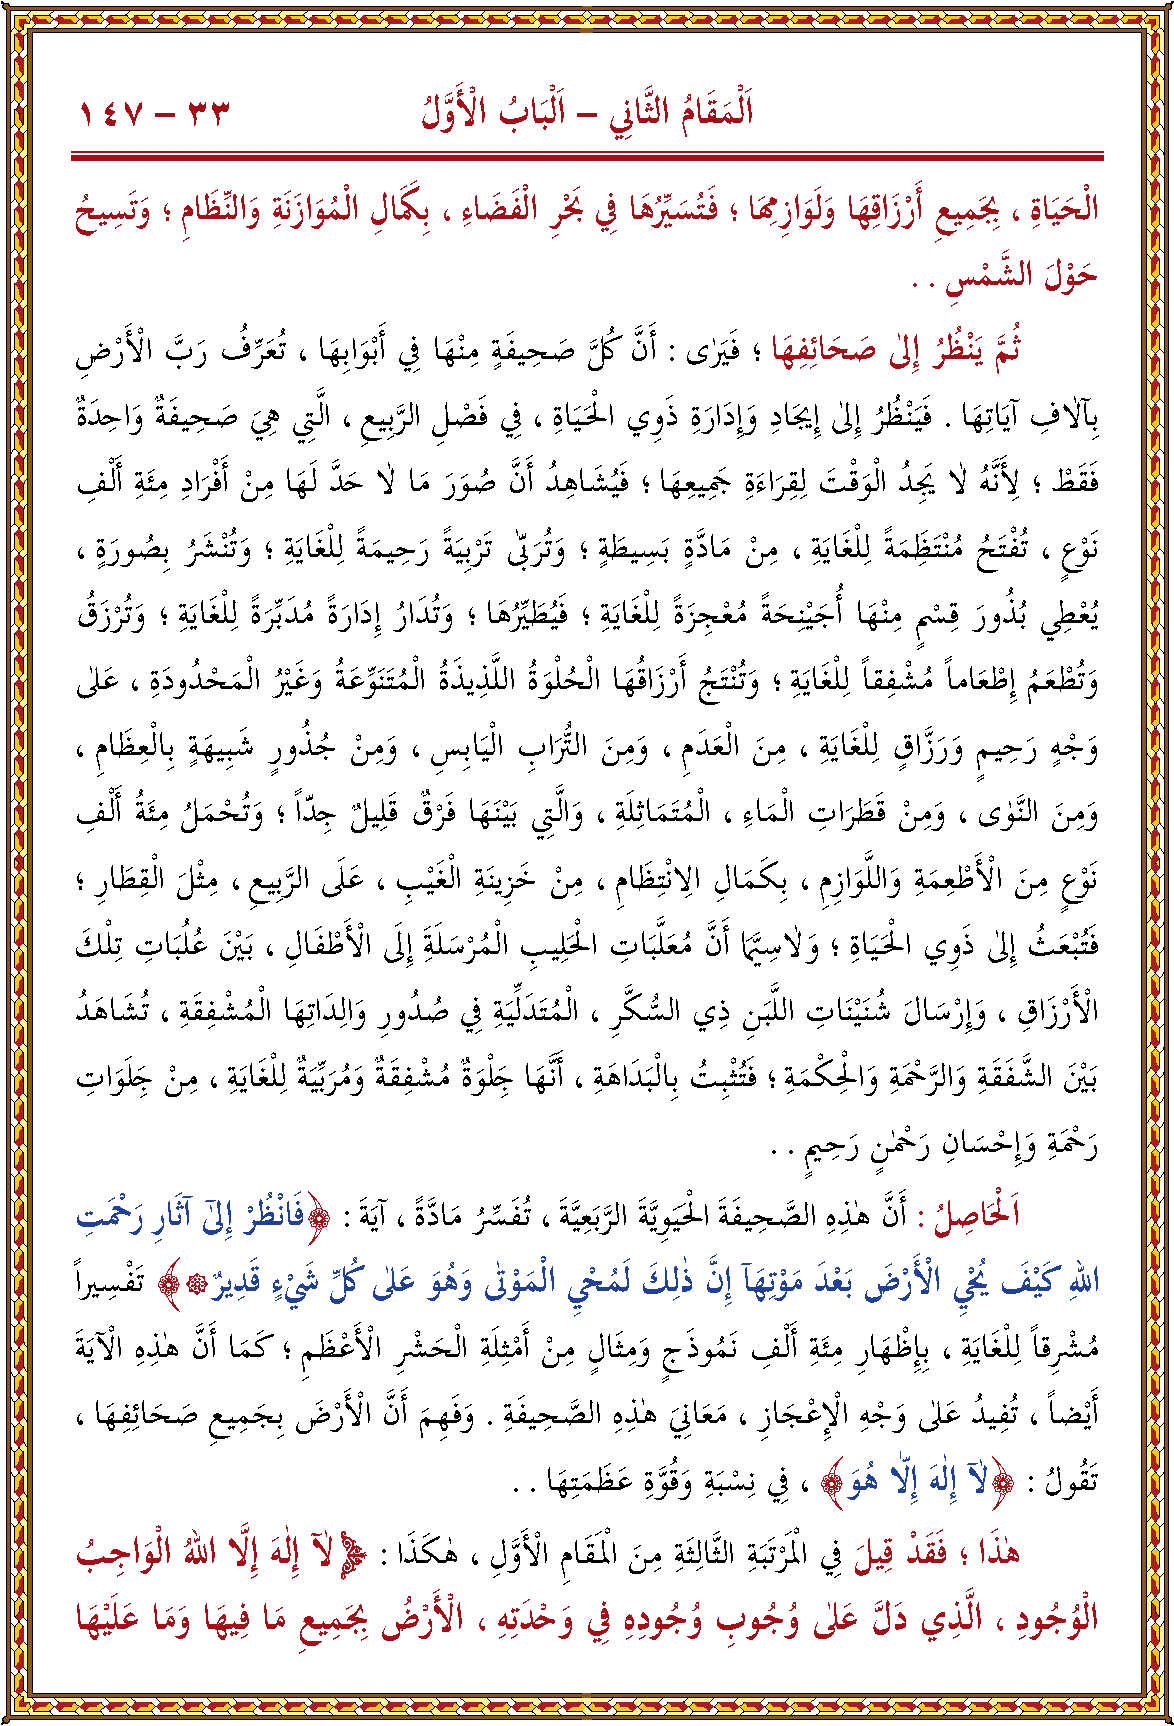 اَلْمَقَامُ الثَّانِي – اَلْبَابُ الْأَوَّلُ ٣٣ – ١٤٧
الْحَيَاةِ ، بِجَمِيعِ أَرْزَاقِهَا وَلَوَازِمِهَا ؛ فَتُسَيِّرُهَا فِي بَحْرِ الْفَضَاءِ ، بِكَمَالِ الْمُوَازَنَةِ وَالنِّظَامِ ؛ وَتَسِيحُ
حَوْلَ الشَّمْسِ . .
ثُمَّ يَنْظُرُ إِلٰى صَحَائِفِهَا ؛ فَيَرٰى : أَنَّ كُلَّ صَحِيفَةٍ مِنْهَا فِي أَبْوَابِهَا ، تُعَرِّفُ رَبَّ الْأَرْضِ
بِآلاٰفِ آيَاتِهَا . فَيَنْظُرُ إِلٰى إِيجَادِ وَإِدَارَةِ ذَوِي الْحَيَاةِ ، فِي فَصْلِ الرَّبِيعِ ، الَّتِي هِيَ صَحِيفَةٌ وَاحِدَةٌ
فَقَطْ ؛ لِأَنَّهُ لاٰ يَجِدُ الْوَقْتَ لِقِرَاءَةِ جَمِيعِهَا ؛ فَيُشَاهِدُ أَنَّ صُوَرَ مَا لاٰ حَدَّ لَهَا مِنْ أَفْرَادِ مِئَةِ أَلْفِ
نَوْعٍ ، تُفْتَحُ مُنْتَظِمَةً لِلْغَايَةِ ، مِنْ مَادَّةٍ بَسِيطَةٍ ؛ وَتُرَبّٰى تَرْبِيَةً رَحِيمَةً لِلْغَايَةِ ؛ وَتُنْشَرُ بِصُورَةٍ ،
يُعْطِي بُذُورَ قِسْمٍ مِنْهَا أُجَنِيْحَةً مُعْجِزَةً لِلْغَايَةِ ؛ فَيُطَيِّرُهَا ؛ وَتُدَارُ إِدَارَةً مُدَبِّرَةً لِلْغَايَةِ ؛ وَتُرْزَقُ
وَتُطْعَمُ إِطْعَاماً مُشْفِقاً لِلْغَايَةِ ؛ وَتُنْتَجُ أَرْزَاقُهَا الْحُلْوَةُ اللَّذِيذَةُ الْمُتَنَوِّعَةُ وَغَيْرُ الْمَحْدُودَةِ ، عَلٰى
وَجْهٍ رَحِيمٍ وَرَزَّاقٍ لِلْغَايَةِ ، مِنَ الْعَدَمِ ، وَمِنَ التُّرَابِ الْيَابِسِ ، وَمِنْ جُذُورٍ شَبِيهَةٍ بِالْعِظَامِ ،
وَمِنَ النَّوٰى ، وَمِنْ قَطَرَاتِ الْمَاءِ ، الْمُتَمَاثِلَةِ ، وَالَّتِي بَيْنَهَا فَرْقٌ قَلِيلٌ جِدّاً ؛ وَتُحْمَلُ مِئَةُ أَلْفِ
نَوْعٍ مِنَ الْأَطْعِمَةِ وَاللَّوَازِمِ ، بِكَمَالِ الِانْتِظَامِ ، مِنْ خَزِينَةِ الْغَيْبِ ، عَلَى الرَّبِيعِ ، مِثْلَ الْقِطَارِ ؛
فَتُبْعَثُ إِلٰى ذَوِي الْحَيَاةِ ؛ وَلاٰسِيَّمَا أَنَّ مُعَلَّبَاتِ الْحَلِيبِ الْمُرْسَلَةَ إِلَى الْأَطْفَالِ ، بَيْنَ عُلُبَاتِ تِلْكَ
الْأَرْزَاقِ ، وَإِرْسَالَ شُنَيْنَاتِ اللَّبَنِ ذِي السُّكَّرِ ، الْمُتَدَلِّيَةِ فِي صُدُورِ وَالِدَاتِهَا الْمُشْفِقَةِ ، تُشَاهَدُ
بَيْنَ الشَّفَقَةِ وَالرَّحْمَةِ وَالْحِكْمَةِ ؛ فَتُثْبِتُ بِالْبَدَاهَةِ ، أَنَّهَا جَلْوَةٌ مُشْفِقَةٌ وَمُرَبِّيَةٌ لِلْغَايَةِ ، مِنْ جَلَوَاتِ
رَحْمَةِ وَإِحْسَانِ رَحْمٰنٍ رَحِيمٍ . .
اَلْحَاصِلُ : أَنَّ هٰذِهِ الصَّحِيفَةَ الْحَيَوِيَّةَ الرَّبَعِيَّةَ ، تُفَسِّرُ مَادَّةً ، آيَةَ : ﴿فَانْظُرْ إِلٰٓى آثَارِ رَحْمَتِ
اللهِ كَيْفَ يُحْيِي الْأَرْضَ بَعْدَ مَوْتِهَآ إِنَّ ذٰلِكَ لَمُحْيِي الْمَوْتٰى وَهُوَ عَلٰى كُلِّ شَيْءٍ قَدِيرٌ﴾ تَفْسِيراً
مُشْرِقاً لِلْغَايَةِ ، بِإِظْهَارِ مِئَةِ أَلْفِ نَمُوذَجٍ وَمِثَالٍ مِنْ أَمْثِلَةِ الْحَشْرِ الْأَعْظَمِ ؛ كَمَا أَنَّ هٰذِهِ الْآيَةَ
أَيْضاً ، تُفِيدُ عَلٰى وَجْهِ الْإِعْجَازِ ، مَعَانِيَ هٰذِهِ الصَّحِيفَةِ . وَفَهِمَ أَنَّ الْأَرْضَ بِجَمِيعِ صَحَائِفِهَا ،
تَقُولُ : ﴿لآٰ إِلٰهَ إِلاّٰ هُوَ﴾ ، فِي نِسْبَةِ وَقُوَّةِ عَظَمَتِهَا . .
هٰذَا ؛ فَقَدْ قِيلَ فِي الْمَرْتَبَةِ الثَّالِثَةِ مِنَ الْمَقَامِ الْأَوَّلِ ، هٰكَذَا : ﴿لآٰ إِلٰهَ إِلَّا اللهُ الْوَاجِبُ
الْوُجُودِ ، الَّذِي دَلَّ عَلٰى وُجُوبِ وُجُودِهِ فِي وَحْدَتِهِ ، الْأَرْضُ بِجَمِيعِ مَا فِيهَا وَمَا عَلَيْهَا